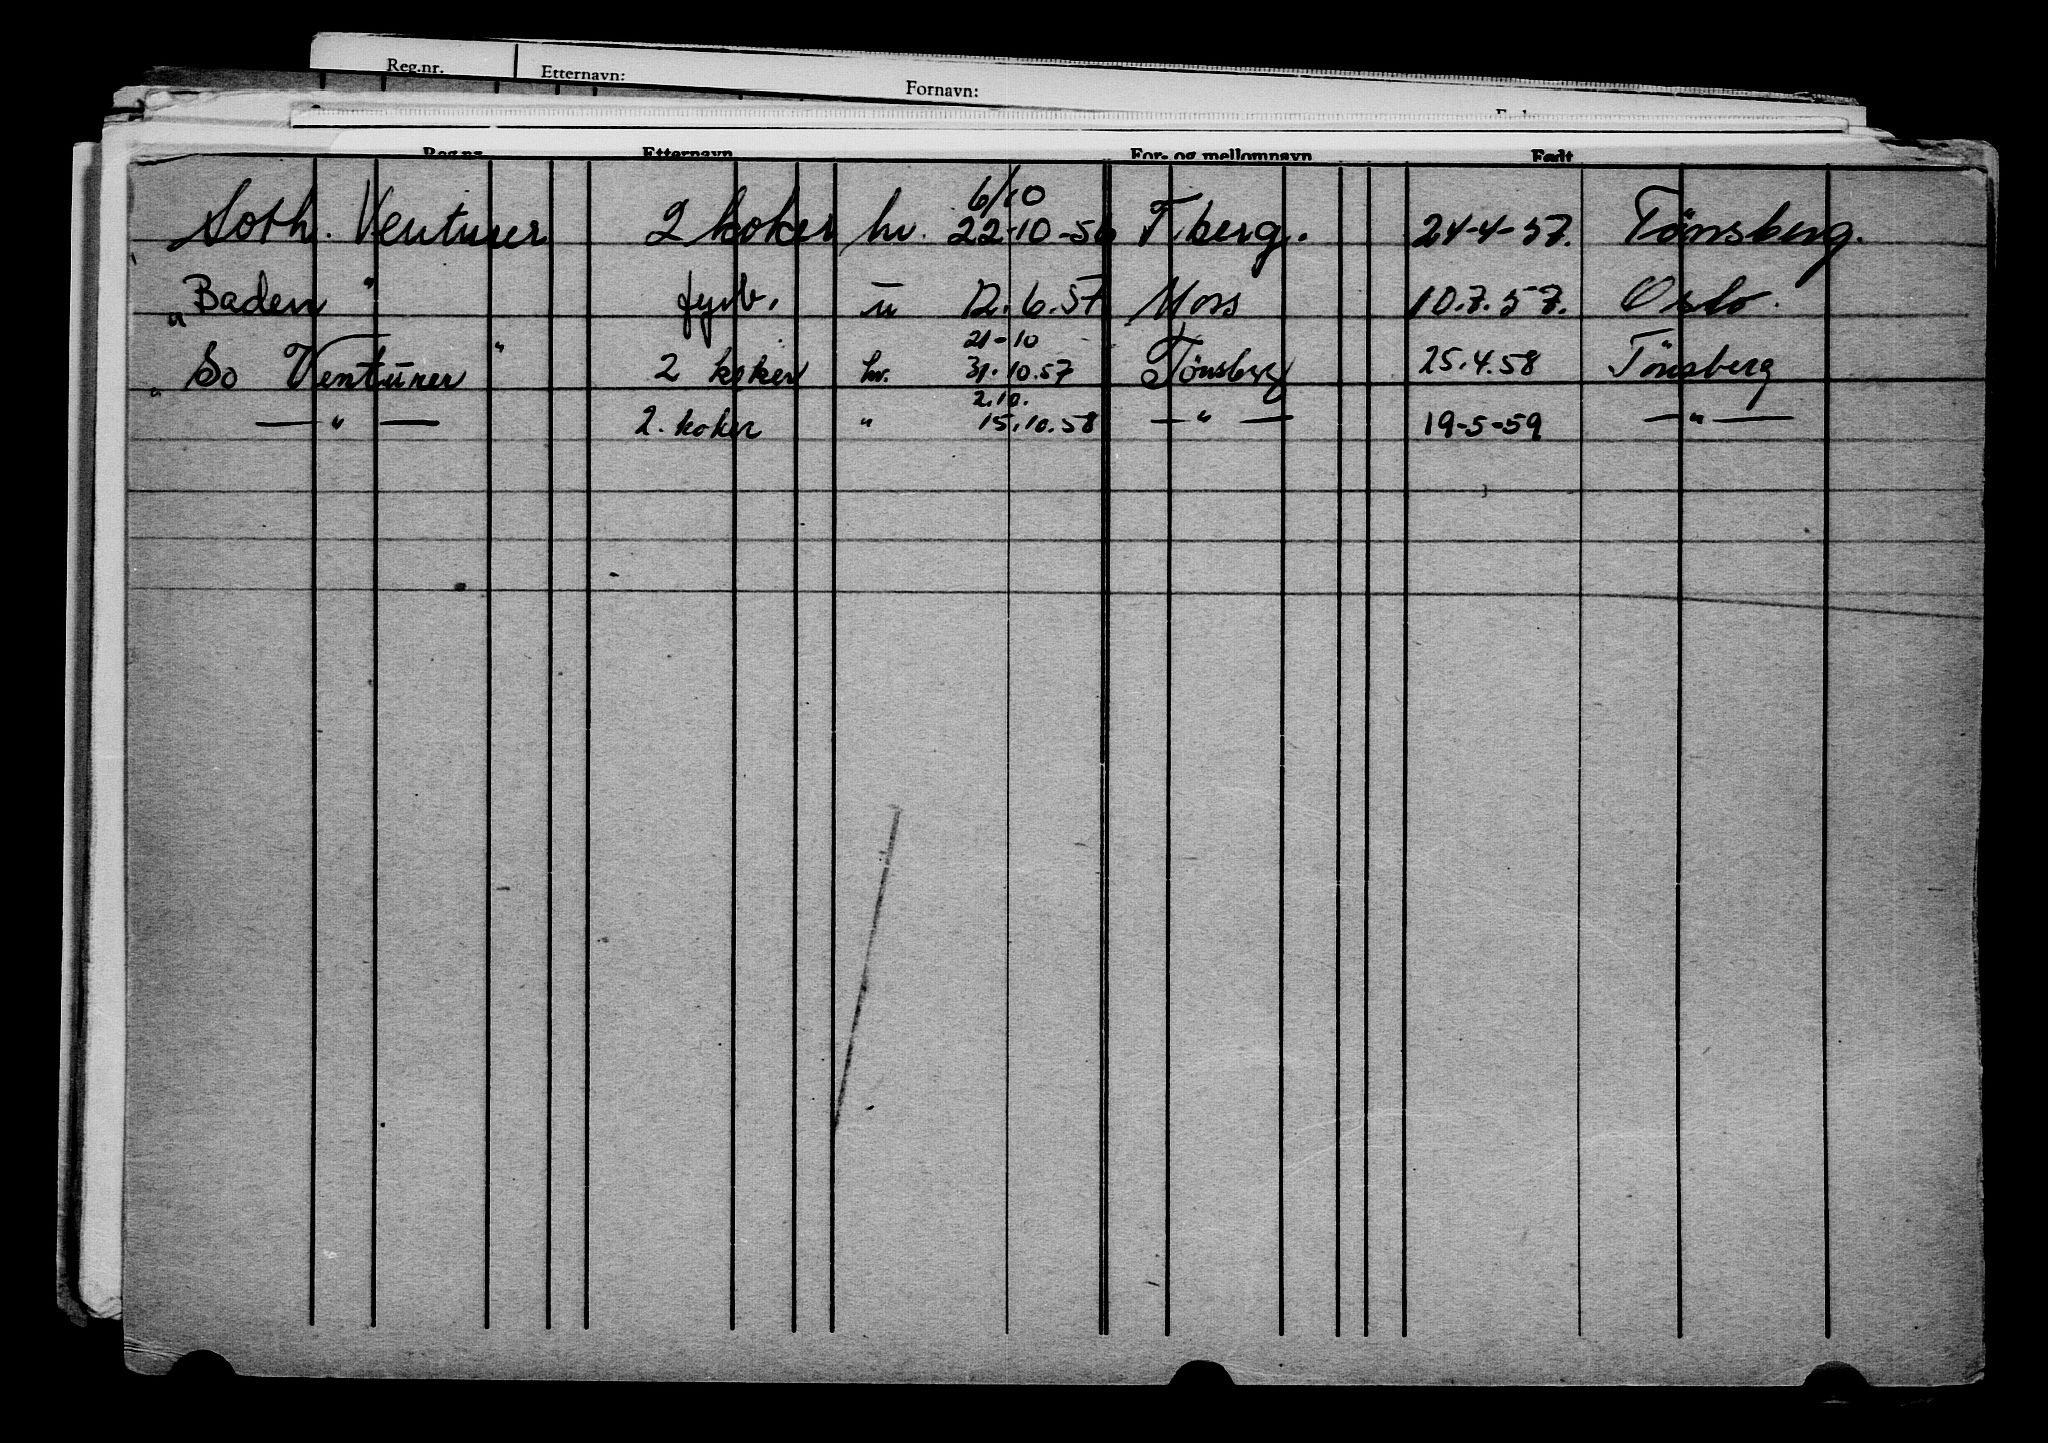 Reg.nr. Etternavn: Fornavn:
Reg.nr. Etternavn For- og mellomnavn Født
6/10
Soth. Venturer 2 koker hv. 22-10-56 T.berg. 24-4-57. Tönsberg.
Baden " fyrb. u 12.6.57 Moss 10.7.57. Oslo.
21-10
" So Venturer " 2 koker hv. 31.10.57 Tönsberg 25.4.58 Tönsberg
2.10.
" — " — 2. koker " 15.10.58 — " — 19-5-59 — " —